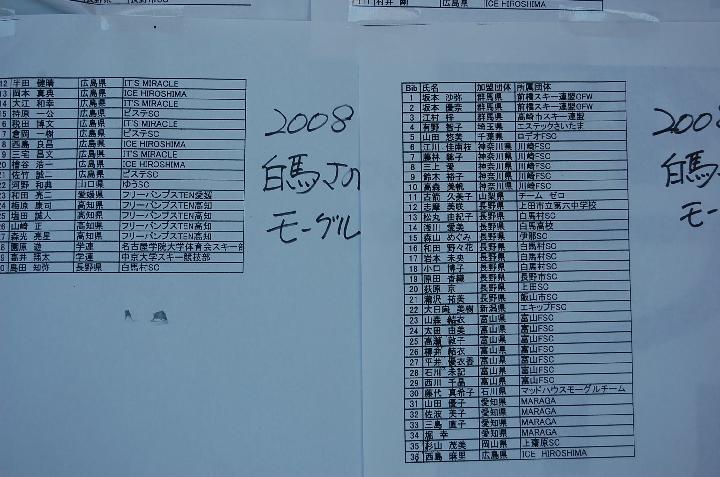 村井 剛 広島県 ICE HIROSHIMA
12 半田 健晴 広島県 IT'S MIRACLE
13 岡本 真典 広島県 ICE HIROSHIMA
14 大江 和幸 広島県 IT'S MIRACLE
15 持原 一公 広島県 ピステSC
6 税田 博文 広島県 IT'S MIRACLE
7 倉岡 一樹 広島県 ピステSC
8 西島 良昌 広島県 ICE HIROSHIMA
9 三宅 昌文 広島県 IT'S MIRACLE
20 檜谷 浩一 広島県 ICE HIROSHIMA
21 佐竹 誠二 広島県 ピステSC
22 河野 和典 山口県 ゆうSC
23 和田 亮二 愛媛県 フリーバンプスTEN愛媛
24 稲波 康司 高知県 フリーバンプスTEN高知
25 塩田 誠人 高知県 フリーバンプスTEN高知
26 山崎 正 高知県 フリーバンプスTEN高知
27 森光 亮星 高知県 フリーバンプスTEN高知
8 薗原 遊 学連 名古屋学院大学体育会スキー部
9 高井 翔太 学連 中京大学スキー競技部
0 島田 知弥 長野県 白馬村SC
2008
白馬さの
モーグル
Bib 氏名 加盟団体 所属団体
1 坂本 沙弥 群馬県 前橋スキー連盟OFW
2 坂本 優奈 群馬県 前橋スキー連盟OFW
3 江村 梓 群馬県 高崎市スキー連盟
4 有野 智子 埼玉県 エステックさいたま
5 山田 悠美 千葉県 ロデオFSC
6 江川 佳南枝 神奈川県 川崎FSC
7 藤林 睦子 神奈川県 川崎FSC
8 三上 愛 神奈川県 川崎FSC
9 鈴木 裕子 神奈川県 川崎FSC
10 高森 美帆 神奈川県 川崎FSC
11 古箭 久美子 山梨県 チーム ゼロ
12 志摩 美咲 長野県 上田市立第六中学校
13 松丸 由紀子 長野県 白馬村SC
14 浅川 愛美 長野県 白馬高校
15 森山 めぐみ 長野県 伊那SC
16 和田 野々花 長野県 白馬村SC
17 岩本 未央 長野県 白馬村SC
18 小口 博子 長野県 白馬村SC
19 原田 香織 長野県 長野市SC
20 荻原 京 長野県 上田SC
21 瀧沢 祐美 長野県 飯山市SC
22 大日実 美樹 新潟県 エキップFSC
23 山森 結衣 富山県 富山FSC
24 太田 由美 富山県 富山FSC
25 高瀬 敦子 富山県 富山FSC
26 櫻井 結衣 富山県 富山FSC
27 平井 優衣香 富山県 富山FSC
28 石川 未記 富山県 富山FSC
29 西川 千晶 富山県 富山FSC
30 藤代 真希子 石川県 マッドハウスモーグルチーム
31 山田 優子 愛知県 MARAGA
32 佐波 芙子 愛知県 MARAGA
33 三島 直子 愛知県 MARAGA
34 堀 幸 愛知県 MARAGA
35 杉山 茂美 岡山県 上齋原SC
36 西島 麻里 広島県 ICE HIROSHIMA
200
白馬
モー